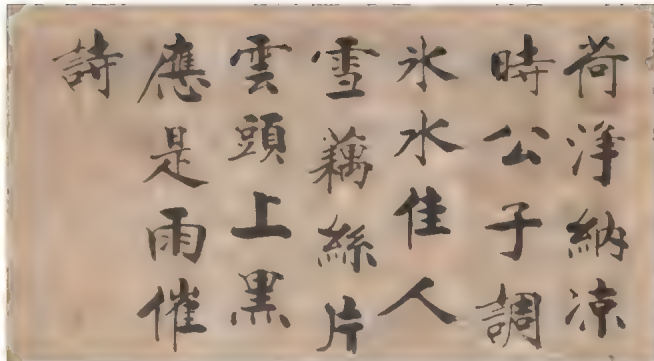 荷淨納凉
時公子調
氷水佳人
雪藕絲片
雲頭上黑
應是雨催
詩